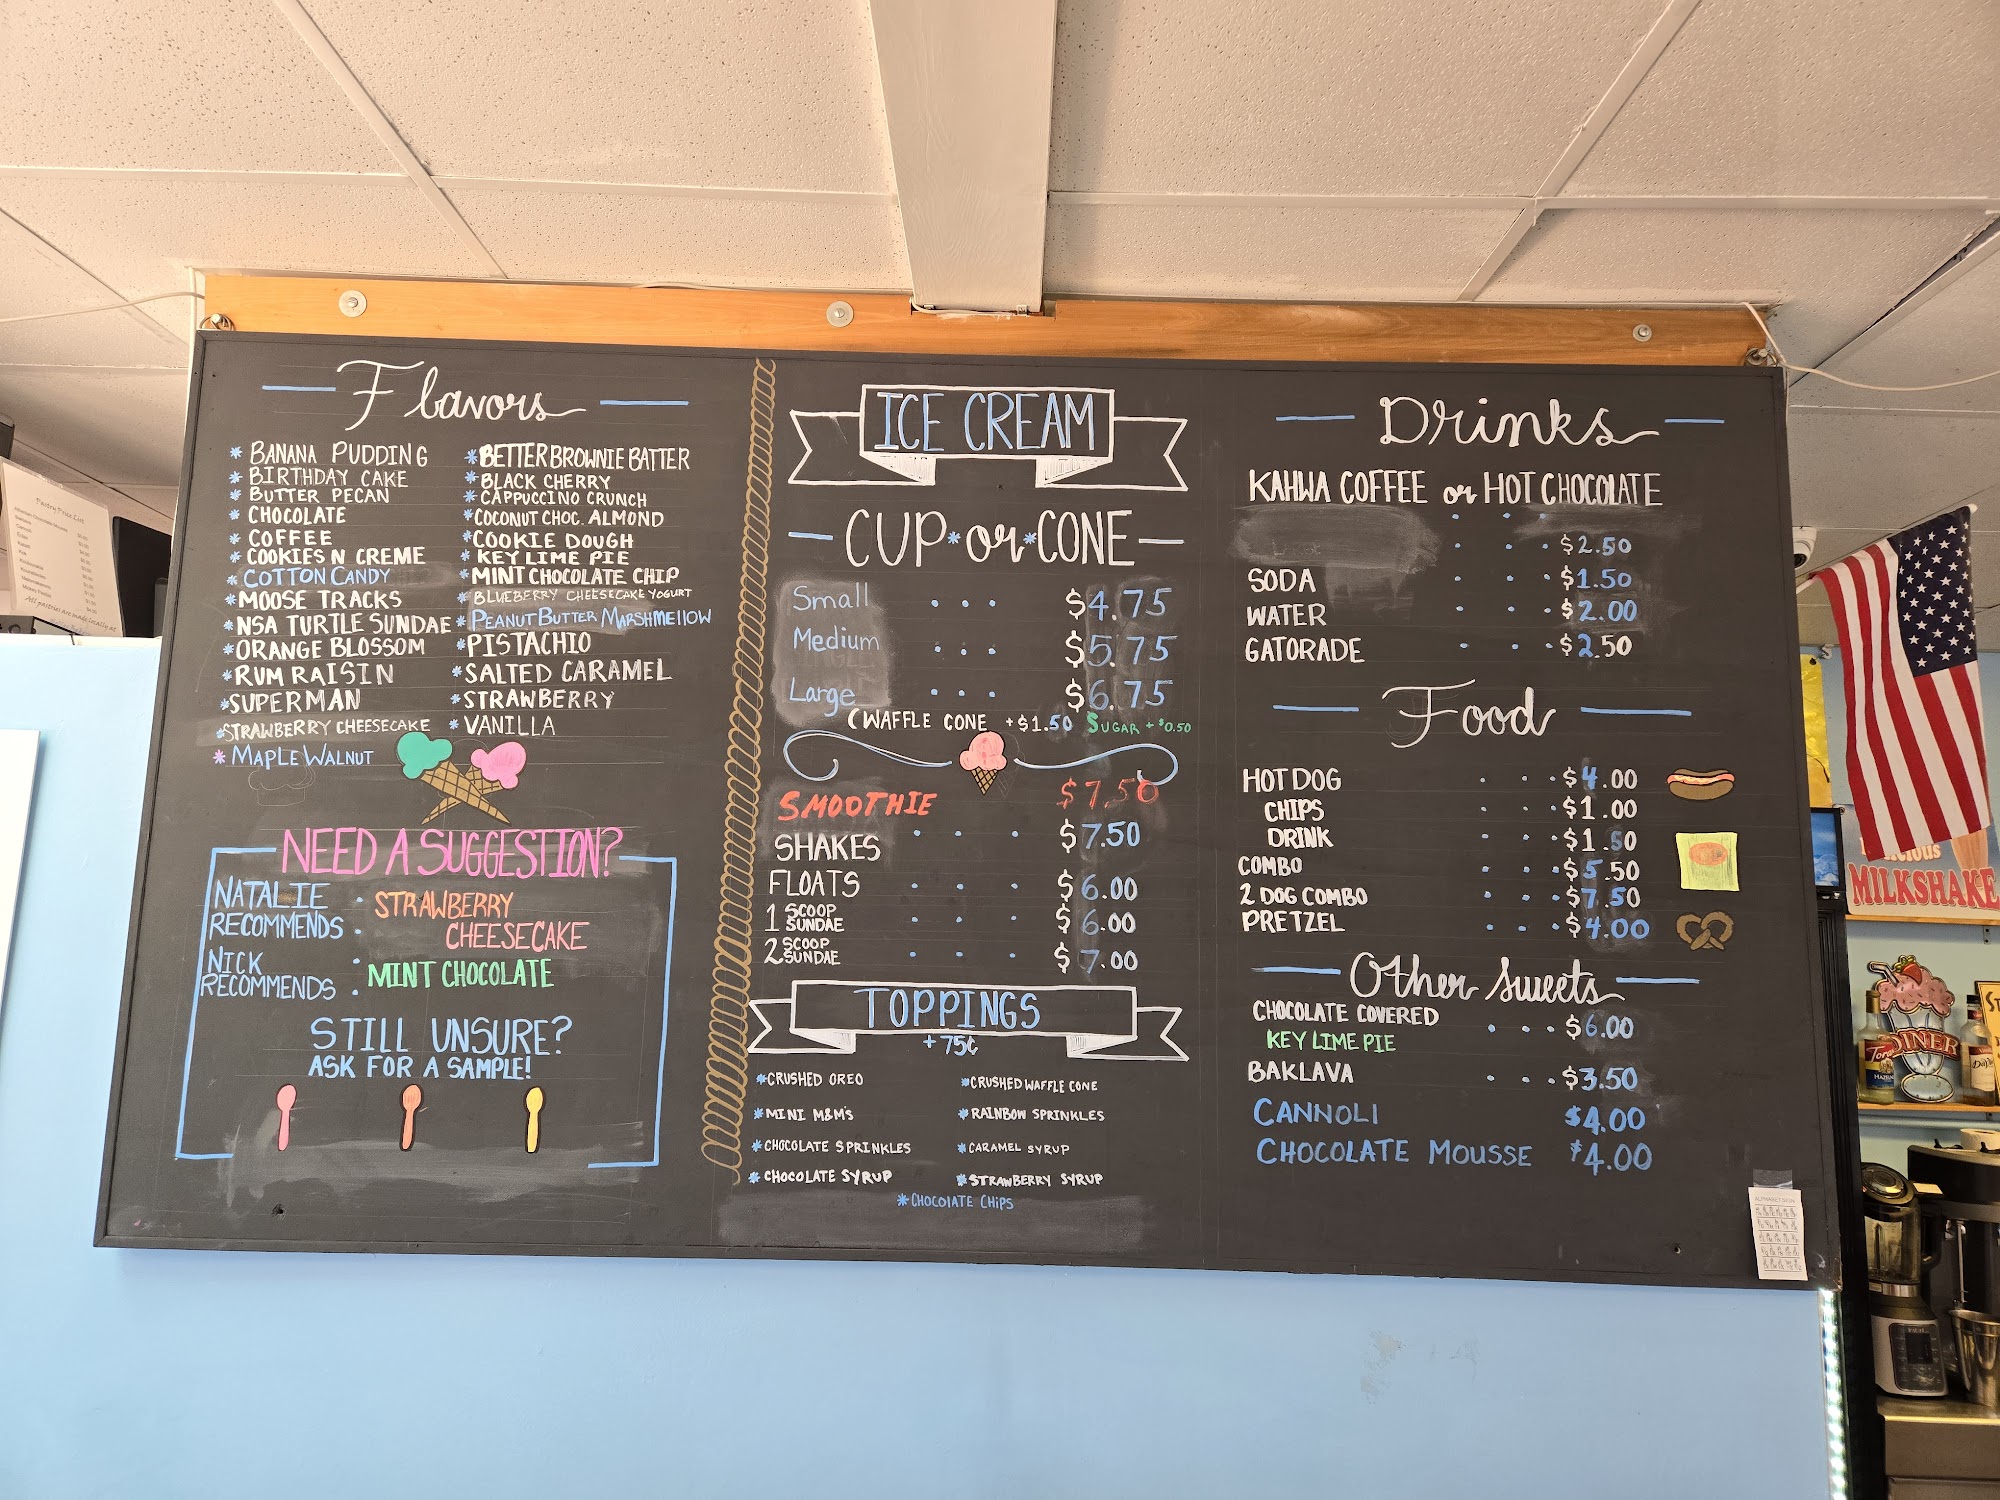 Flavors
* BANANA PUDDING
* BIRTHDAY CAKE
* BUTTER PECAN
* CHOCOLATE
* COFFEE
* COOKIES N CREME
* COTTON CANDY
* MOOSE TRACKS
* NSA TURTLE SUNDAE
* ORANGE BLOSSOM
* RUM RAISIN
* SUPERMAN
* STRAWBERRY CHEESECAKE
* MAPLE WALNUT
* BETTER BROWNIE BATTER
* BLACK CHERRY
* CAPPUCCINO CRUNCH
* COCONUT CHOC. ALMOND
* COOKIE DOUGH
* KEY LIME PIE
* MINT CHOCOLATE CHIP
* BLUEBERRY CHEESECAKE YOGURT
* PEANUT BUTTER MARSHMELLOW
* PISTACHIO
* SALTED CARAMEL
* STRAWBERRY
* VANILLA
NEED A SUGGESTION?
NATALIE RECOMMENDS : STRAWBERRY CHEESECAKE
NICK RECOMMENDS : MINT CHOCOLATE
STILL UNSURE?
ASK FOR A SAMPLE!
ICE CREAM
CUP * or * CONE
Small . . . $4.75
Medium . . . $5.75
Large . . . $6.75
(WAFFLE CONE +$1.50 SUGAR +$0.50
SMOOTHIE $7.50
SHAKES . . . $7.50
FLOATS . . . $6.00
1 SCOOP SUNDAE . . . $6.00
2 SCOOP SUNDAE . . . $7.00
TOPPINGS
+ 75¢
* CRUSHED OREO
* MINI M&M'S
* CHOCOLATE SPRINKLES
* CHOCOLATE SYRUP
* CRUSHED WAFFLE CONE
* RAINBOW SPRINKLES
* CARAMEL SYRUP
* STRAWBERRY SYRUP
* CHOCOLATE CHIPS
Drinks
KAHWA COFFEE or HOT CHOCOLATE
. . . $2.50
SODA . . . $1.50
WATER . . . $2.00
GATORADE . . . $2.50
Food
HOT DOG . . . $4.00
CHIPS . . . $1.00
DRINK . . . $1.50
COMBO . . . $5.50
2 DOG COMBO . . . $7.50
PRETZEL . . . $4.00
Other Sweets
CHOCOLATE COVERED . . . $6.00
KEY LIME PIE
BAKLAVA . . . $3.50
CANNOLI $4.00
CHOCOLATE MOUSSE $4.00
Pastry Price List
All pastries are made locally
ALPHABET SIGN
MILKSHAKE
DINER